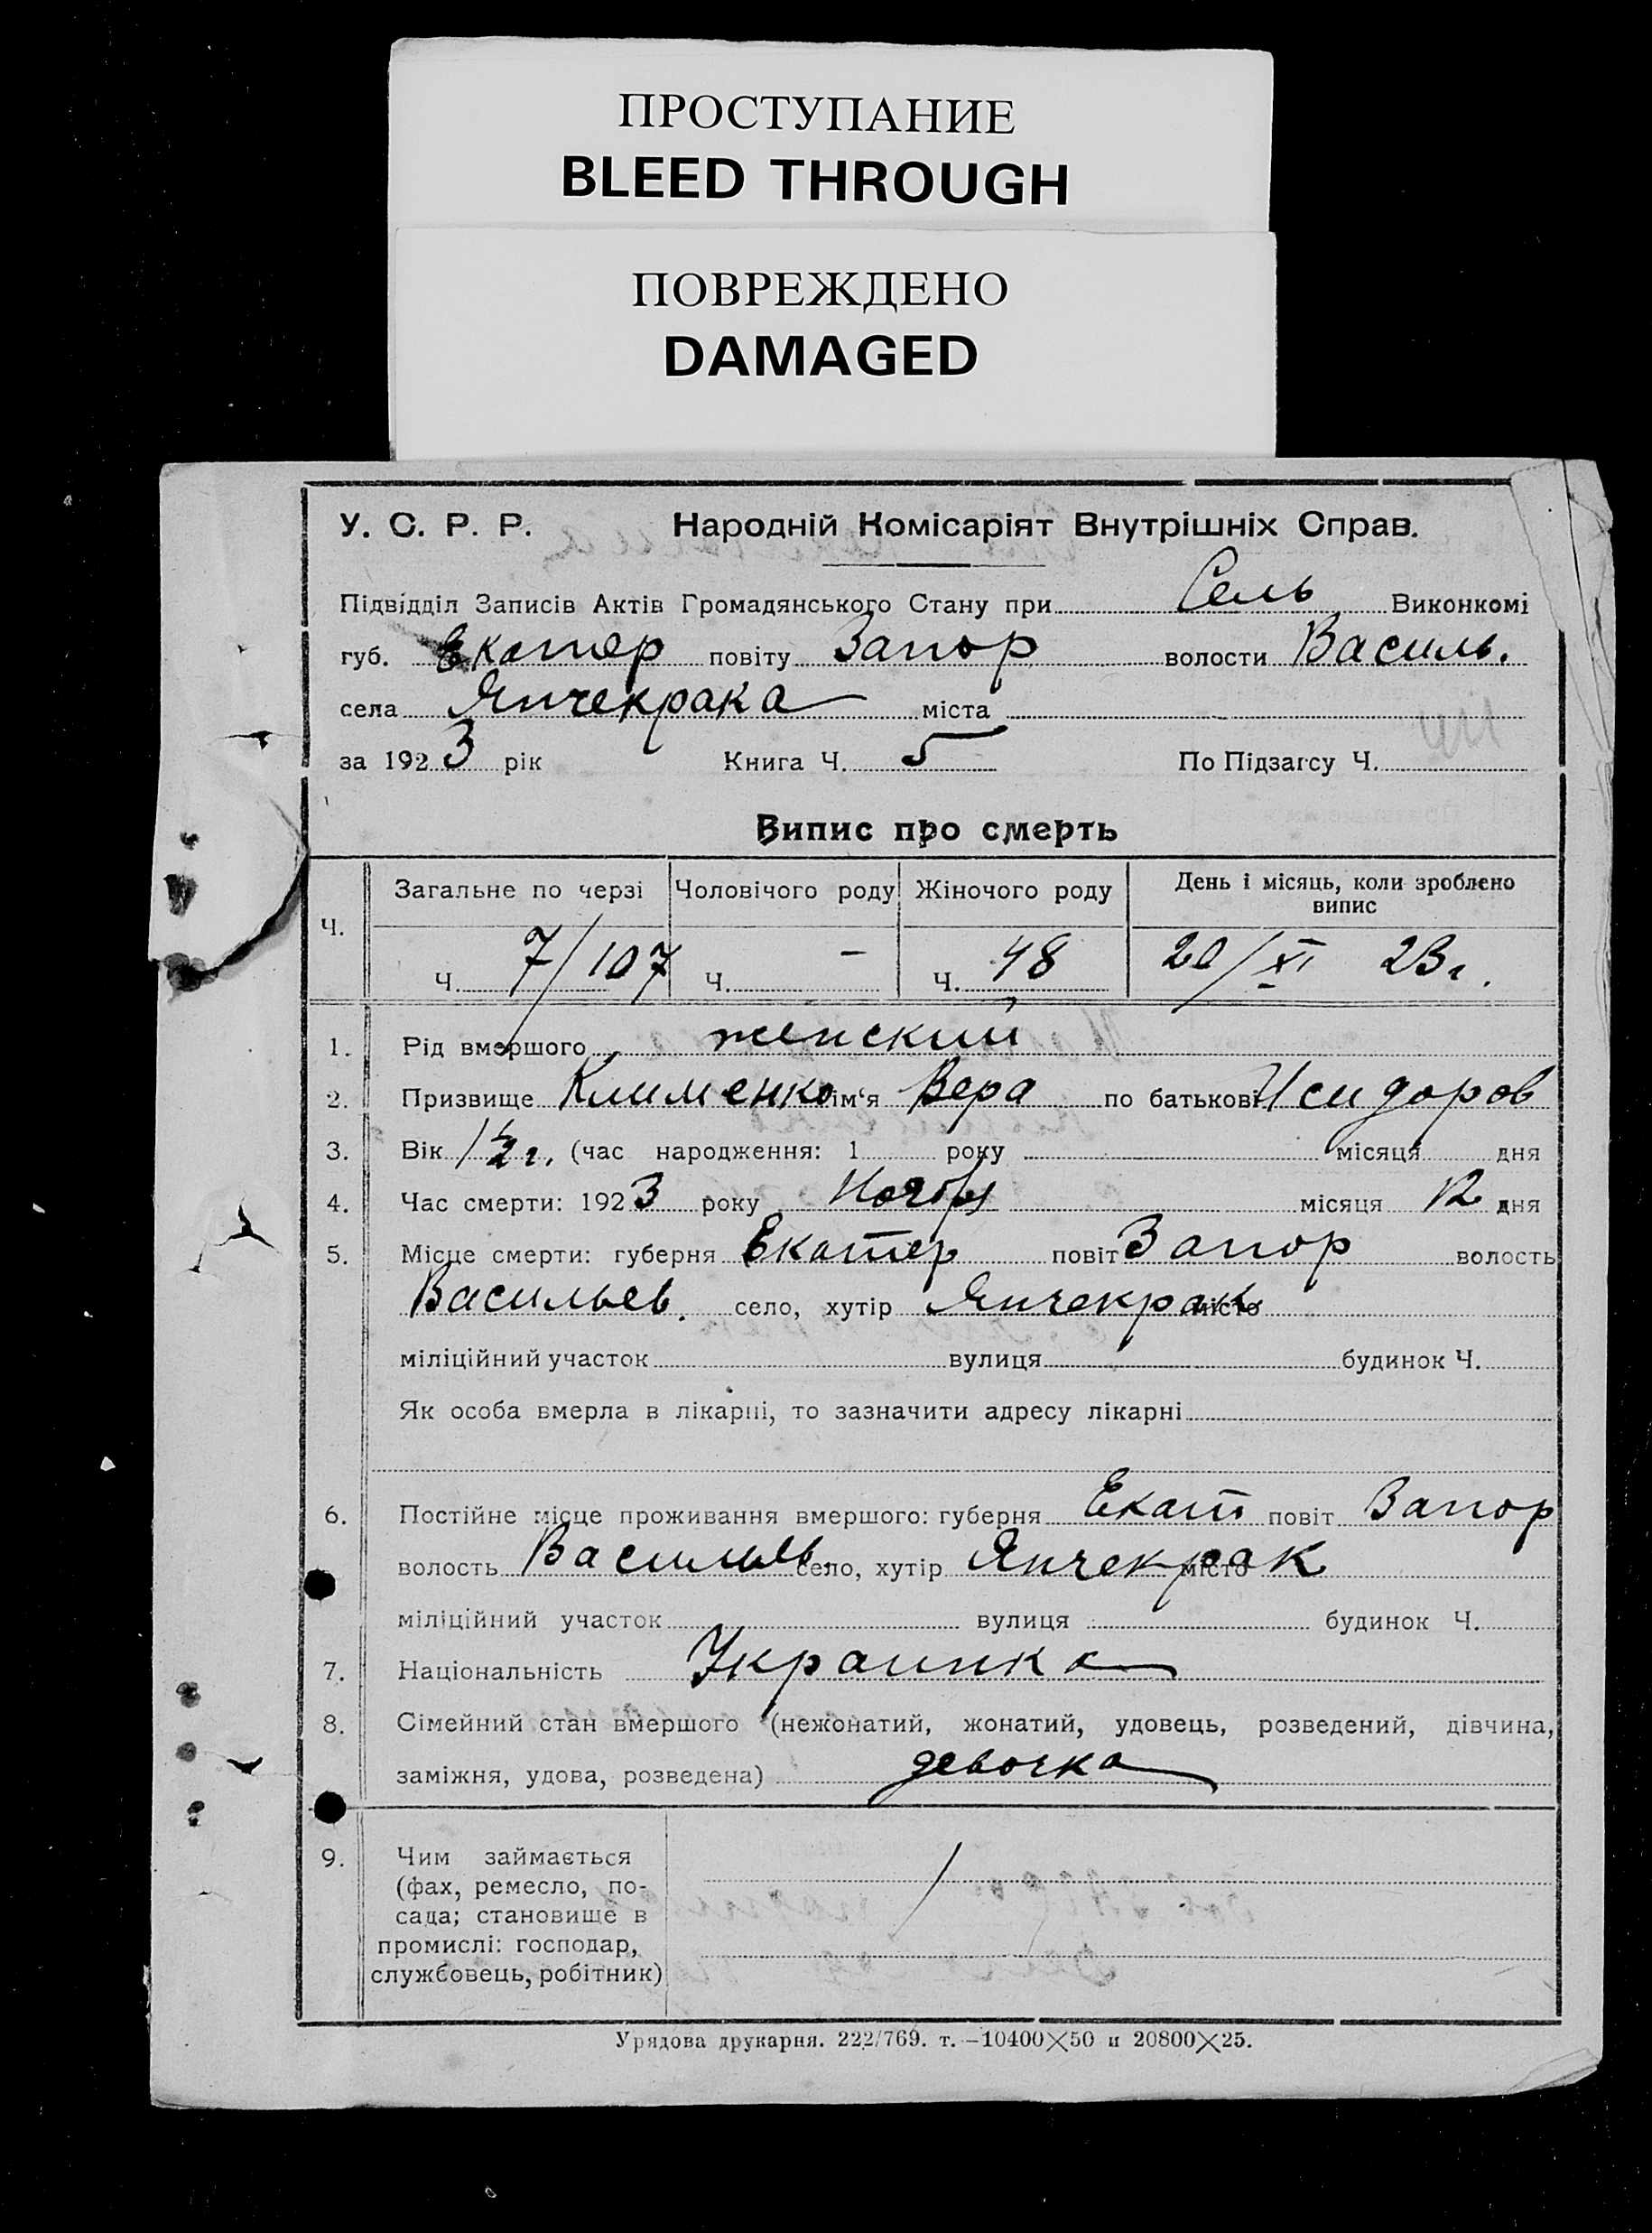 ПРОСТУПАНИЕ
BLEED THROUGH
ПОВРЕЖДЕНО
DAMAGED
У. С. Р. Р. Народній Комісаріят Внутрішніх Справ.
Підвідділ Записів Актів Громадянського Стану при Сель Виконкомі
губ. Екатер повіту Запор волости Василь.
села Янчекрака міста
за 1923 рік Книга Ч. 5 По Підзагсу Ч.
Випис про смерть
Ч. Загальне по черзі Чоловічого роду Жіночого роду День і місяць, коли зроблено випис
Ч. 7/107 Ч. – Ч. 48 20/XI 23 г.
1. Рід вмершого женский
2. Призвище Клименко ім‘я Вера по батькові Исидоров
3. Вік 1½ г. (час народження: 1 року місяця дня
4. Час смерти: 1923 року Ноября місяця 12 дня
5. Місце смерти: губерня Екатер повіт Запор волость
Васильев. село, хутір Янчекрак місто
міліційний участок вулиця будинок Ч.
Як особа вмерла в лікарні, то зазначити адресу лікарні
6. Постійне місце проживання вмершого: губерня Екат повіт Запор
волость Васильев. село, хутір Янчекрак місто
міліційний участок вулиця будинок Ч.
7. Національність Украинка
8. Сімейний стан вмершого (нежонатий, жонатий, удовець, розведений, дівчина,
заміжня, удова, розведена) девочка
9. Чим займається
(фах, ремесло, по-
сада; становище в
промислі: господар,
службовець, робітник)
Урядова друкарня. 222/769. т. –10400×50 и 20800×25.